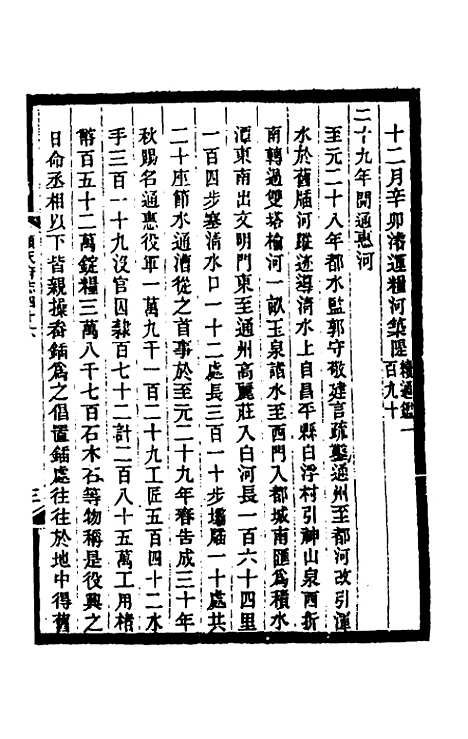 十二月辛卯濬運糧河築隄續通鑑一百九十
二十九年開通惠河
至元二十八年都水監郭守敬建言疏鑿通州至都河改引渾
水於舊牐河蹤迹導清水上自昌平縣白浮村引神山泉西折
南轉過雙塔榆河一畝玉泉諸水至西門入都城南匯爲積水
潭東南出文明門東至通州高麗莊入白河長一百六十四里
一百四步塞清水口一十二處長三百一十步壩牐一十處共
二十座節水通漕從之首事於至元二十九年春告成三十年
秋賜名通惠役軍一萬九千一百二十九工匠五百四十二水
手三百一十九沒官囚隸百七十二計二百八十五萬工用楮
幣百五十二萬錠糧三萬八千七百石木石等物稱是役興之
日命丞相以下皆親操畚鍤爲之倡置牐處往往於地中得舊
順天府志四十六
三